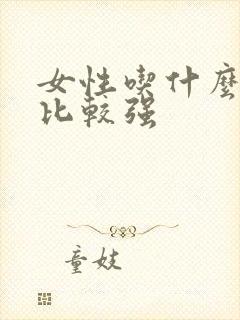 女性喫什麼
比較强
童妓